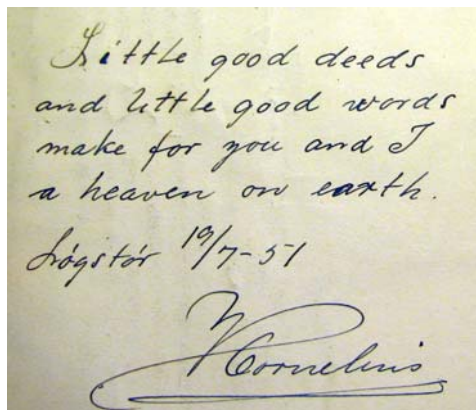 Little good deeds
and little good words
make for you and I
a heaven on earth.
Lógstór 19/7-51
Cornelius